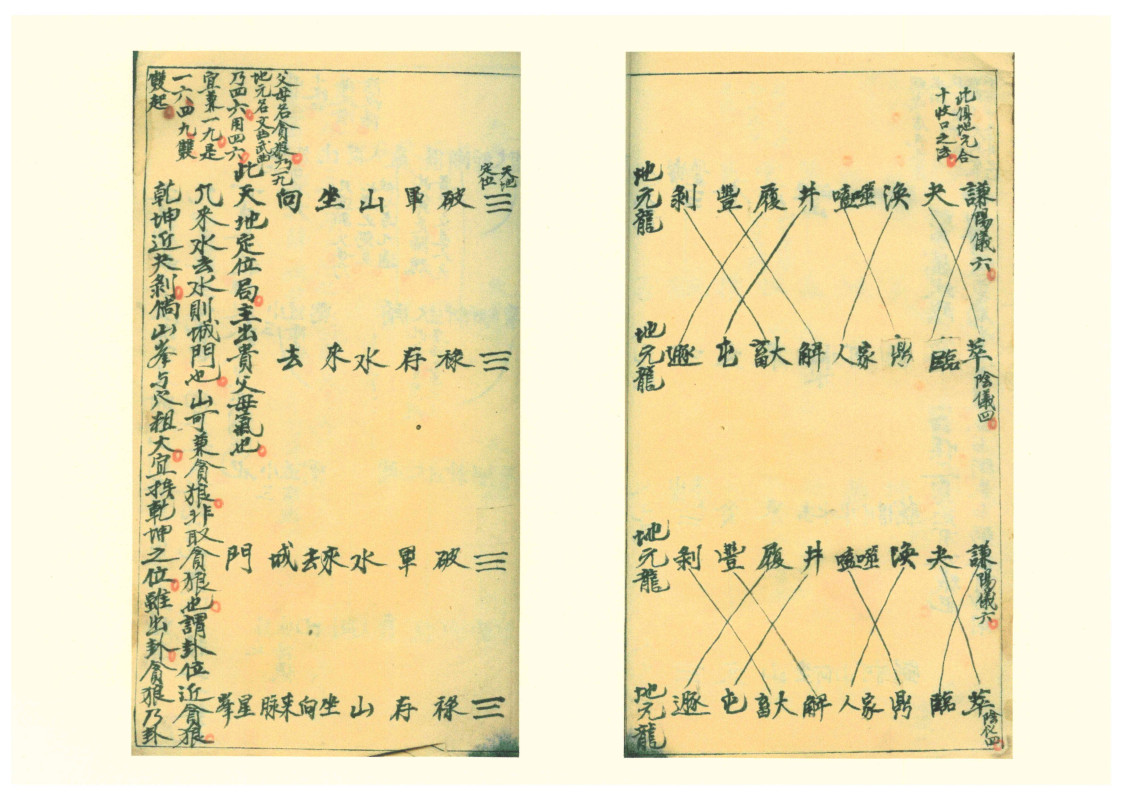 此俱地元合
十收口之法
謙陽儀六
夬
渙
噬嗑
井
履
豐
剝
地元龍
萃陰儀四
臨
鼎
家人
解
大畜
屯
遯
地元龍
謙陽儀六
夬
渙
噬嗑
井
履
豐
剝
地元龍
萃陰仪四
臨
鼎
家人
解
大畜
屯
遯
地元龍
天地
定位
破軍山坐向
祿存水來去
破軍水來去城門
祿存山坐向來脈星峯
父母名貪狼乃一九
地元名文曲武曲
乃四六用四六
宜兼一九是
一六四九雙
雙起
此天地定位局主出貴父母氣也
凢來水去水則城門也山可兼貪狼非取貪狼也謂卦位近貪狼
乾坤近夬剝倘山峯与穴粗大宜挨乾坤之位雖出卦貪狼乃卦